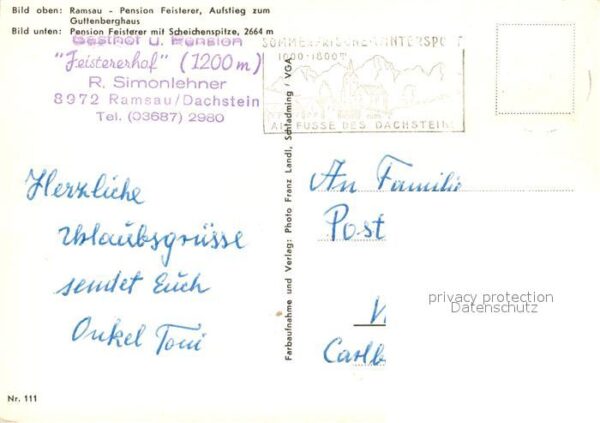 Bild oben: Ramsau - Pension Feisterer, Aufstieg zum
Guttenberghaus
Bild unten: Pension Feisterer mit Scheichenspitze, 2664 m
Gasthof u. Pension
"Feistererhof" (1200 m)
R. Simonlehner
8972 Ramsau/Dachstein
Tel. (03687) 2980
SOMMERFRISCHE-WINTERSPORT
1000-1800m
AM FUSSE DES DACHSTEIN
Herzliche
Urlaubsgrüsse
sendet Euch
Onkel Toni
Farbaufnahme und Verlag: Photo Franz Landl, Schladming / VGA
An Famili
Post
Carlb
privacy protection
Datenschutz
Nr. 111